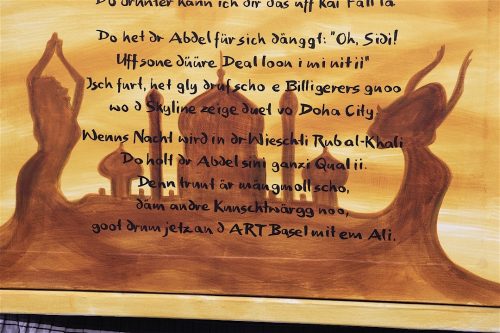 Do drunter kann ich dir das uff kai Fall la
Do het dr Abdel für sich dänggt: "Oh, Sidi!
Uff sone düüre Deal loon i mi nit ii"
Isch furt, het gly druf scho e Billigerers gnoo
wo d Skyline zeige duet vo Doha City.
Wenns Nacht wird in dr Wieschti Rub al-Khali
Do holt dr Abdel sini ganzi Qual ii.
Denn truurt är mängmoll scho,
däm andre Kunschtwärgg noo,
goot drum jetz an d ART Basel mit em Ali.